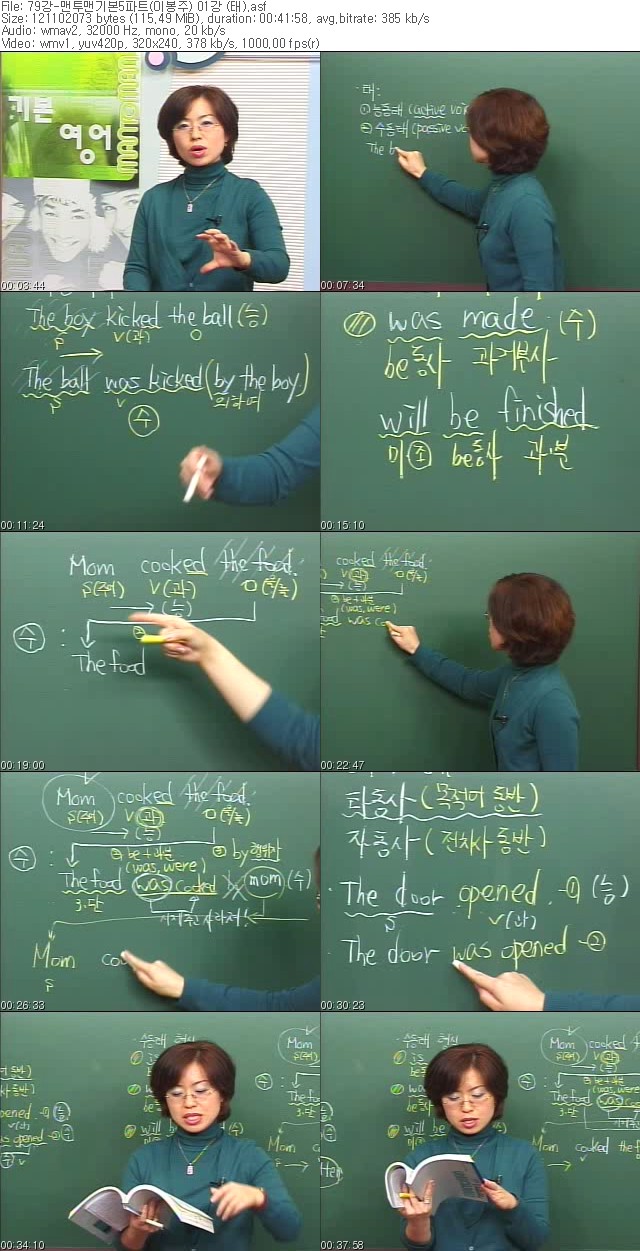 File: 79강-맨투맨기본5파트(이봉주) 01강 (태),asf
Size: 121102073 bytes (115,49 MiB), duration: 00:41:58, avg,bitrate: 385 kb/s
Audio: wmav2, 32000 Hz, mono, 20 kb/s
Video: wmv1, yuv420p, 320x240, 378 kb/s, 1000,00 fps(r)
기본
영어
MANTOMAN
00:03:44
태:
① 능동태 (active voi
② 수동태 (passive vo
The b
00:07:34
The boy kicked the ball (능)
S V(과) O
The ball was kicked (by the boy)
S V 의하여
수
00:11:24
was made (수)
be동사 과거분사
will be finished
미 조 be동사 과·분
00:15:10
Mom cooked the food.
S(주어) V(과) O(목/능)
(능)
수 :
The food
00:19:00
cooked the food.
V(과)
② be+과분
(was, were)
was co
00:22:47
Mom cooked the food.
S(주어) V(과)
(능)
수 : ② be+과분 ③ by행위자
(was, were)
The food was cooked mom (수)
3.단
Mom co
S
00:26:33
타동사 (목적어 동반)
자동사 (전치사 동반)
The door opened. -① (능)
S V(과)
The door was opened -②
00:30:23
수동태 형식
Mom cooked
S(주어) V(과)
is
be동
will b
(수)
pened -①
as opened -②
The foo
3.단
was
Mom
00:34:10
수동태
Mom cooked
S(주어)
is
② be+과분
(was, were)
The foo
was
pened -①
as opened -②
will
Mom cooked the f
00:37:58